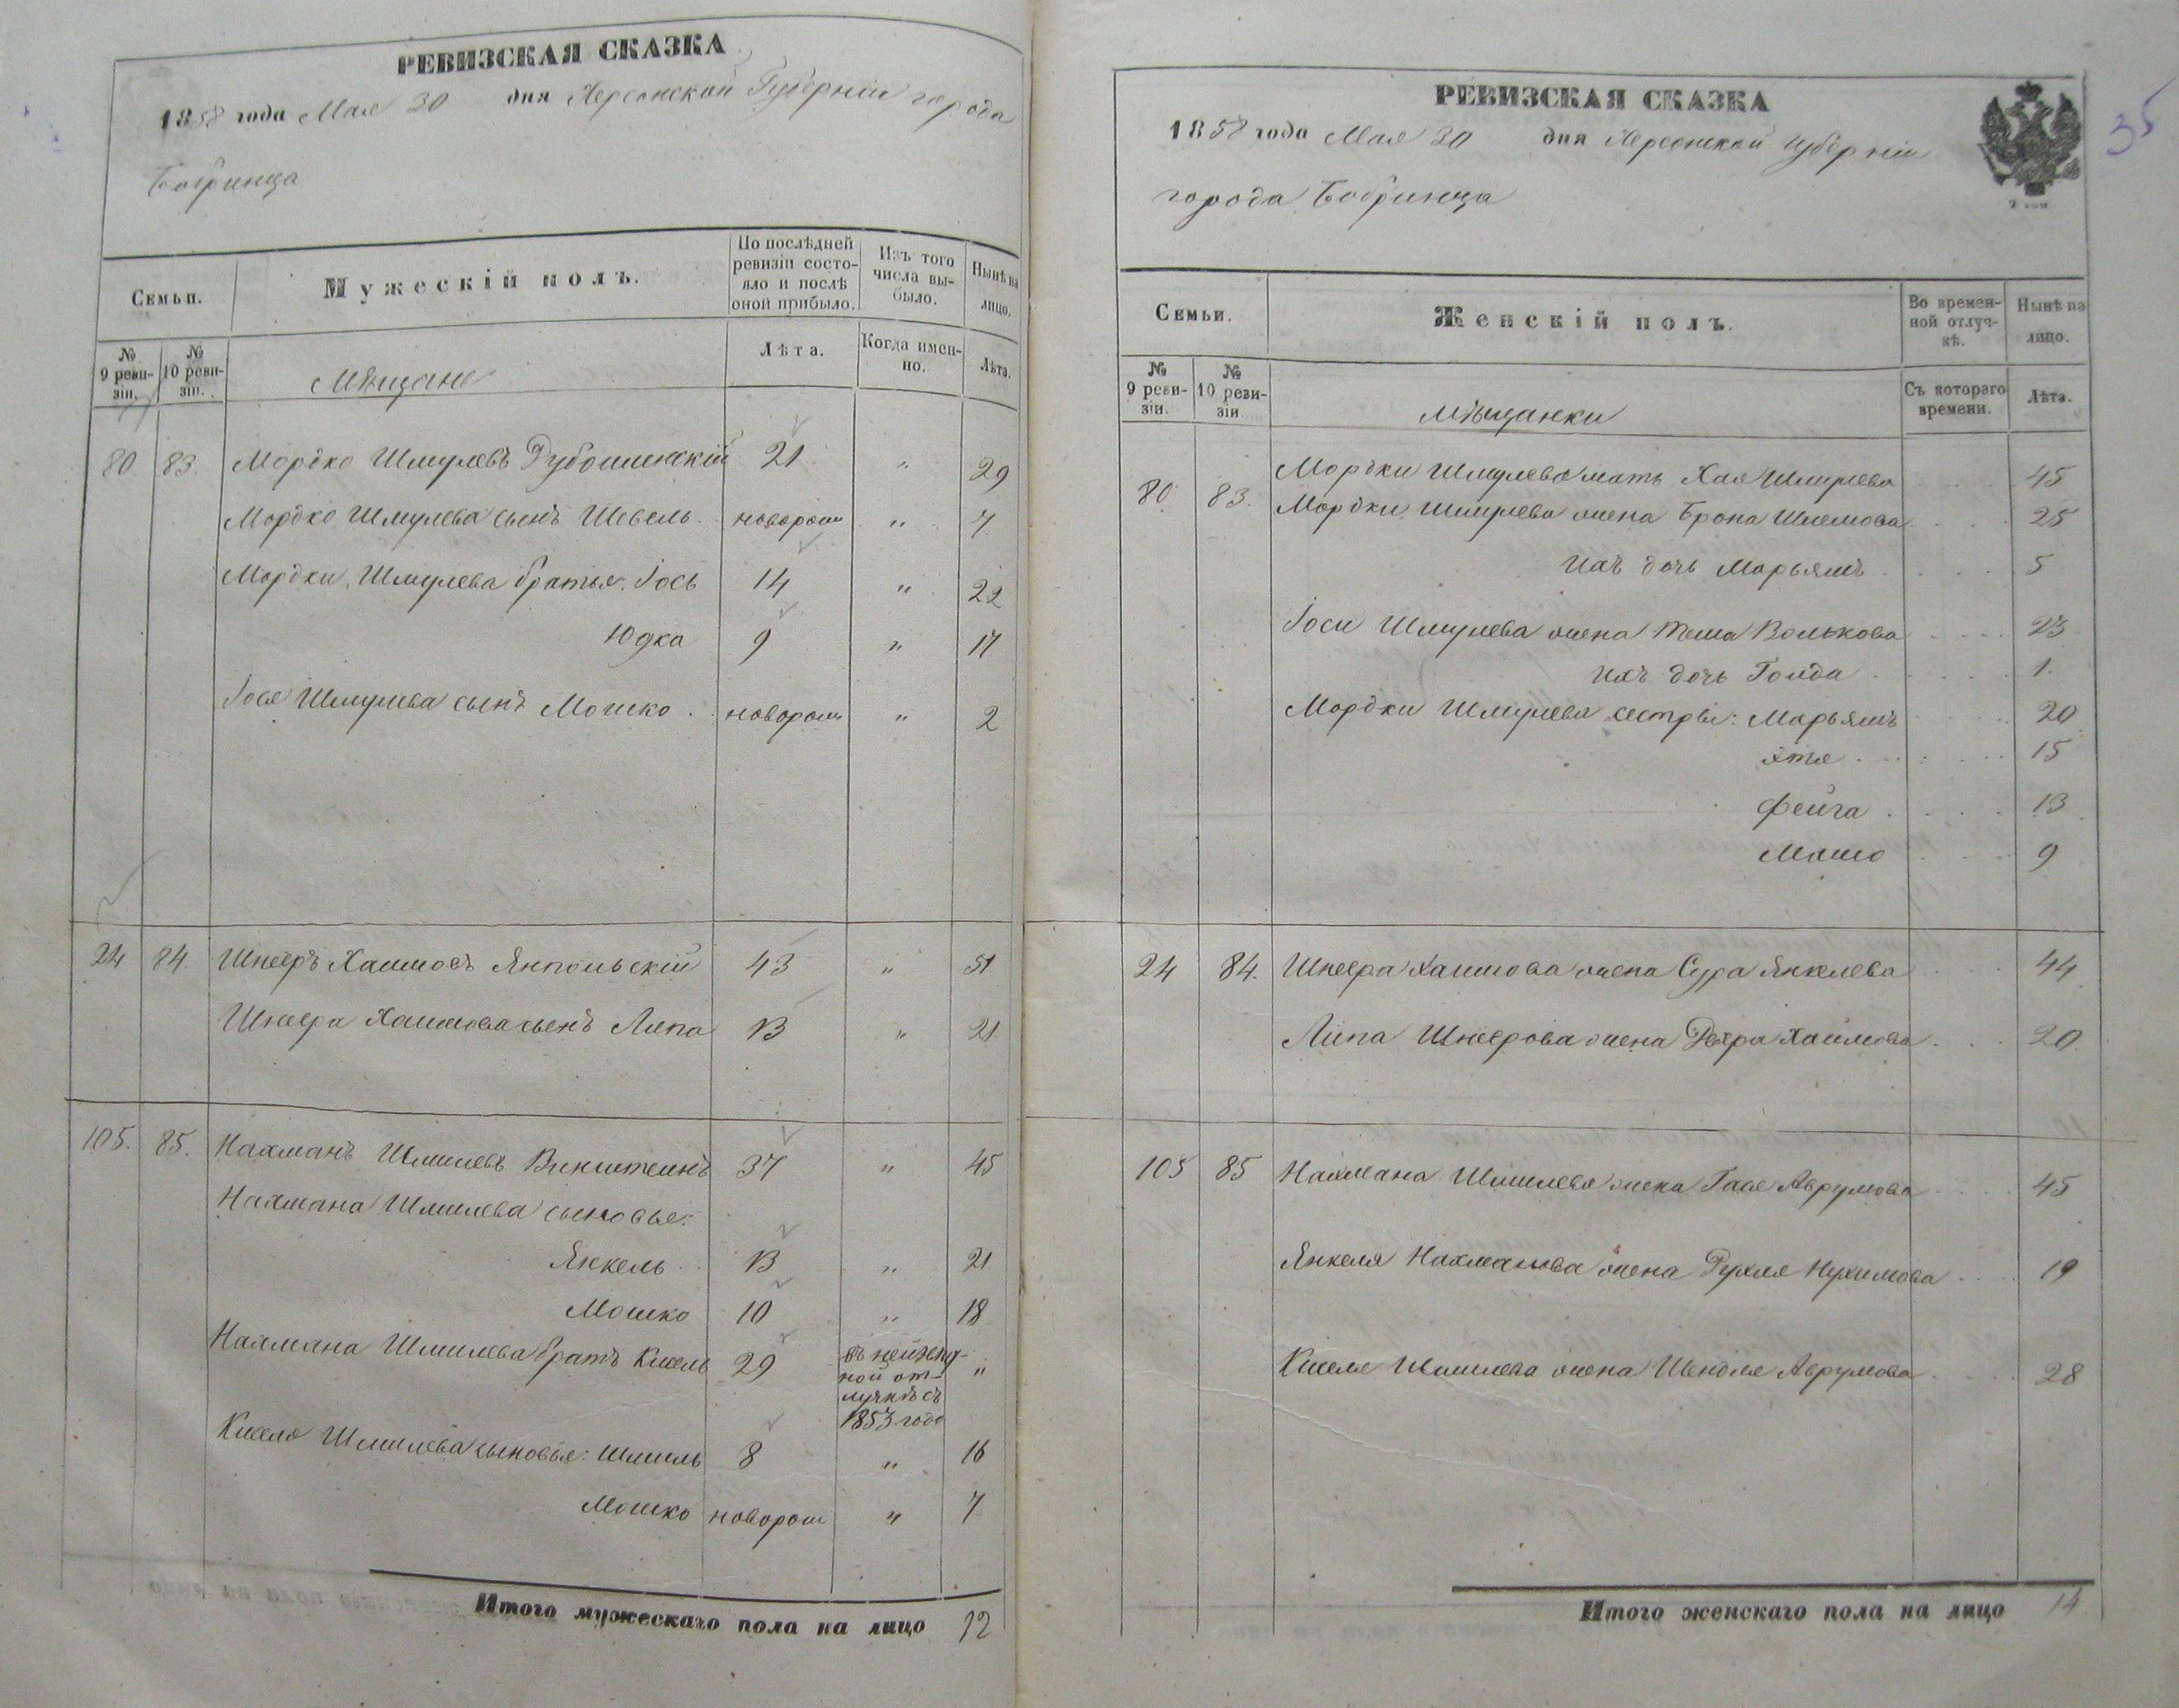 РЕВИЗСКАЯ СКАЗКА
1858 года Мая 30 дня Херсонской Губерніи города
Бобринца
Семьи.
Мужескій полъ.
По послѣдней ревизіи состояло и послѣ оной прибыло.
Изъ того числа выбыло.
Нынѣ на лицо.
№ 9 ревизіи.
№ 10 ревизіи.
Мѣщане
Лѣта.
Когда именно.
Лѣта.
80 83. Мордко Шмулевъ 21 " 29
Мордко Шмулева сынъ Шевель новорож " 7
Мордки Шмулева братья: Іось 14 " 22
Юдка 9 " 17
Іося Шмулева сынъ Мошко новорож " 2
24 84. Шнееръ Хаимовъ Ямпольскій 43 " 51
Шнеера Хаимова сынъ Липа 13 " 21
105. 85. Нахманъ Шмилевъ Викштеинъ 37 " 45
Нахмана Шмилева сыновья:
Янкель 13 " 21
Мошко 10 " 18
Нахмана Шмилева братъ Кисель 29 въ
ной от-
лучкѣ съ "
1853 года
Киселя Шмилева сыновья: Шмиль 8 " 16
Мошко новорож " 7
Итого мужескаго пола на лицо 12
РЕВИЗСКАЯ СКАЗКА
1858 года Мая 30 дня Херсонской Губерніи
города Бобринца
35
Семьи.
Женскій полъ.
Во временной отлучкѣ.
Нынѣ на лицо.
№ 9 ревизіи.
№ 10 ревизіи.
Мѣщанки
Съ котораго времени.
Лѣта.
80 83. Мордки Шмулева мать Хая Шмулева 45
Мордки Шмулева жена Брона Шлемова 25
Ихъ дочь Марьямъ 5
Іоси Шмулева жена Теша Волькова 23
Ихъ дочь Голда 1.
Мордки Шмулева сестры: Марьямъ 20
Этя 15
Фейга 13
9
24 84. Шнеера Хаимова жена Сура Янкелева 44
Липа Шнеерова жена Хаимова 20
105 85 Нахмана Шмилева жена Гася Аврумова 45
Янкеля Нахманова жена Рухля Нухимова 19
Киселя Шмилева жена Шендля Аврумова 28
Итого женскаго пола на лицо 14